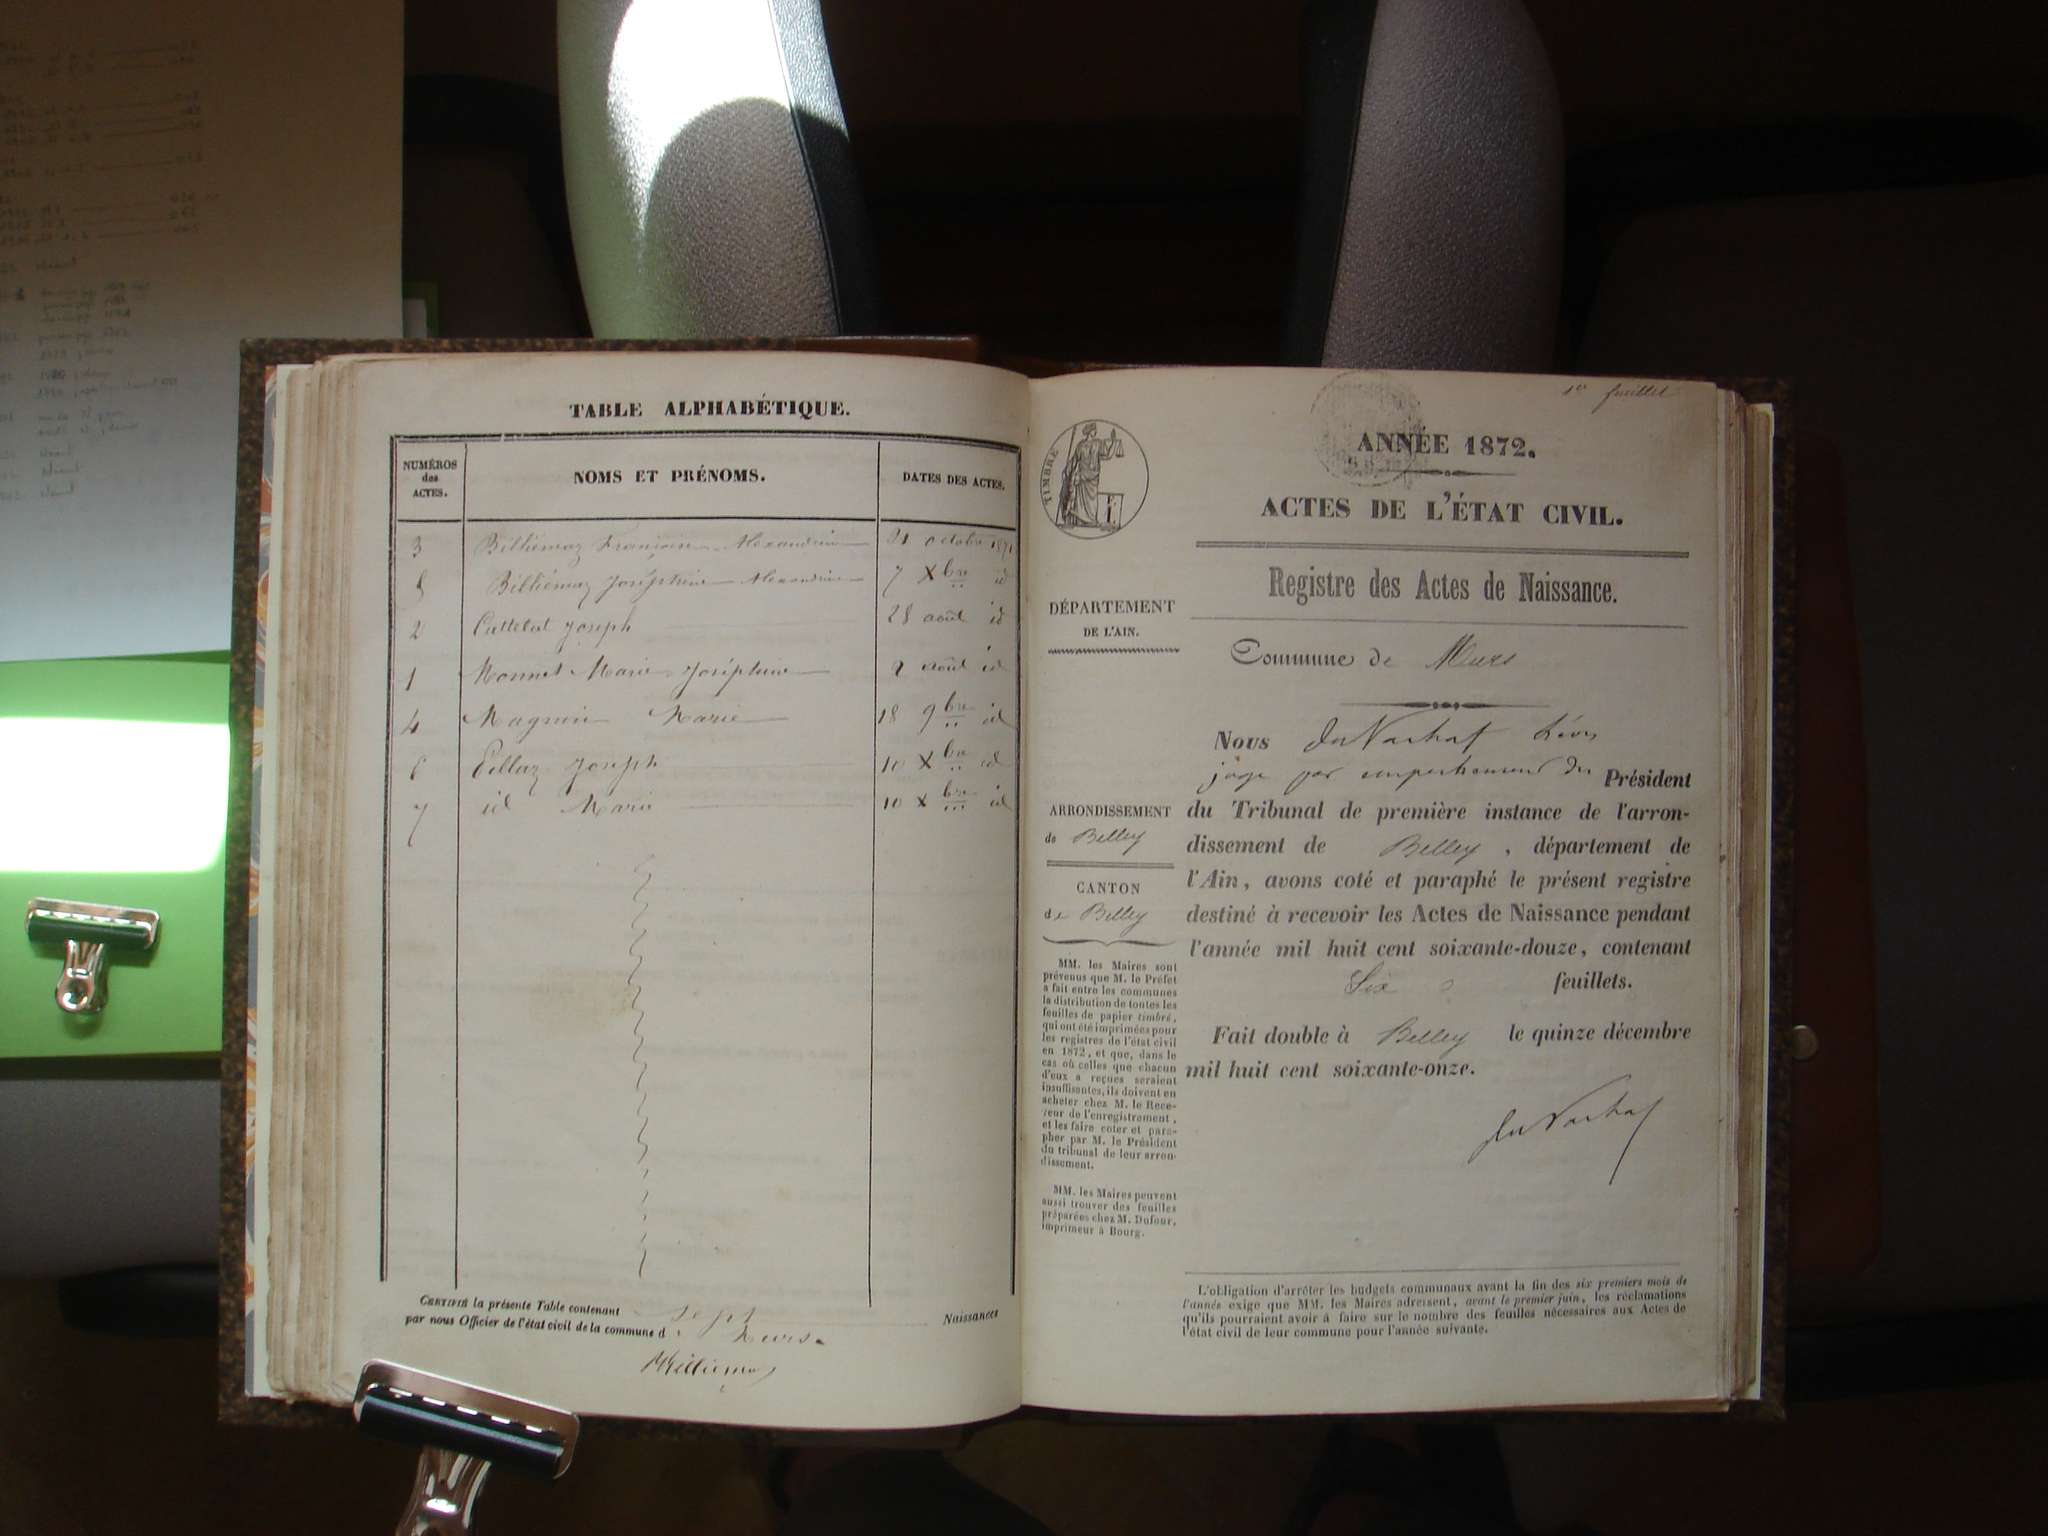 TABLE ALPHABÉTIQUE.
NUMÉROS
des
ACTES.
NOMS ET PRÉNOMS.
DATES DES ACTES.
3 Billiémaz Françoise Alexandrine 21 octobre 1871
Billiémaz Joséphine Alexandrine 7 Xbre id
2 Cattelat Joseph 28 août id
1 Monnet Marie Joséphine 9 août id
4 Magnin Marie 18 9bre id
6 Pillaz Joseph 10 Xbre id
7 id Marie 10 Xbre id
CERTIFIÉ la présente Table contenant sept Naissances
par nous Officier de l'état civil de la commune d
1er feuillet
TIMBRE
ANNÉE 1872.
ACTES DE L'ÉTAT CIVIL.
Registre des Actes de Naissance.
DÉPARTEMENT
DE L'AIN.
Commune de Murs
Nous Léon
juge par empechement du Président
du Tribunal de première instance de l'arron-
dissement de Belley, département de
l'Ain, avons coté et paraphé le présent registre
destiné à recevoir les Actes de Naissance pendant
l'année mil huit cent soixante-douze, contenant
Six feuillets.
Fait double à Belley le quinze décembre
mil huit cent soixante-onze.
ARRONDISSEMENT
de Belley
CANTON
de Belley
MM. les Maires sont
prévenus que M. le Préfet
a fait entre les communes
la distribution de toutes les
feuilles de papier timbré,
qui ont été imprimées pour
les registres de l'état civil
en 1872, et que, dans le
cas où celles que chacun
d'eux a reçues seraient
insuffisantes, ils doivent en
acheter chez M. le Rece-
veur de l'enregistrement,
et les faire coter et para-
pher par M. le Président
du tribunal de leur arron-
dissement.
MM. les Maires peuvent
aussi trouver des feuilles
préparées chez M. Dufour,
imprimeur à Bourg.
L'obligation d'arrêter les budgets communaux avant la fin des six premiers mois de
l'année exige que MM. les Maires adressent, avant le premier juin, les réclamations
qu'ils pourraient avoir à faire sur le nombre des feuilles nécessaires aux Actes de
l'état civil de leur commune pour l'année suivante.